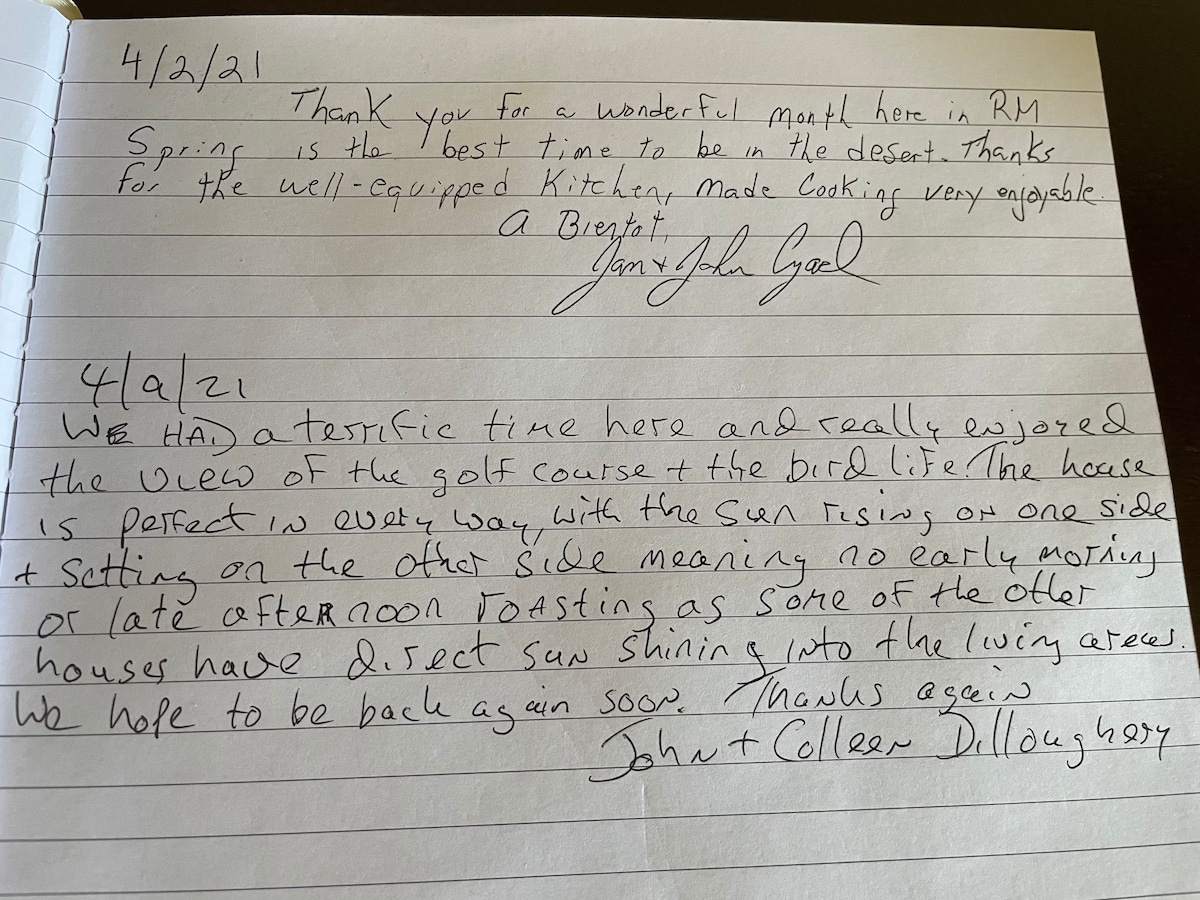 4/2/21
Thank you for a wonderful month here in RM
Spring is the best time to be in the desert. Thanks
for the well-equipped Kitchen, Made Cooking very enjoyable.
A Bientot,
Jan + John
4/9/21
WE HAD a terrific time here and really enjoyed
the view of the golf course + the bird life. The house
is perfect in every way, with the sun rising on one side
+ Setting on the other side meaning no early morning
or late afteRnoon roAsting as some of the other
houses have direct sun shining into the living areas.
We hope to be back again soon. Thanks again
John + Colleen Dilloughery